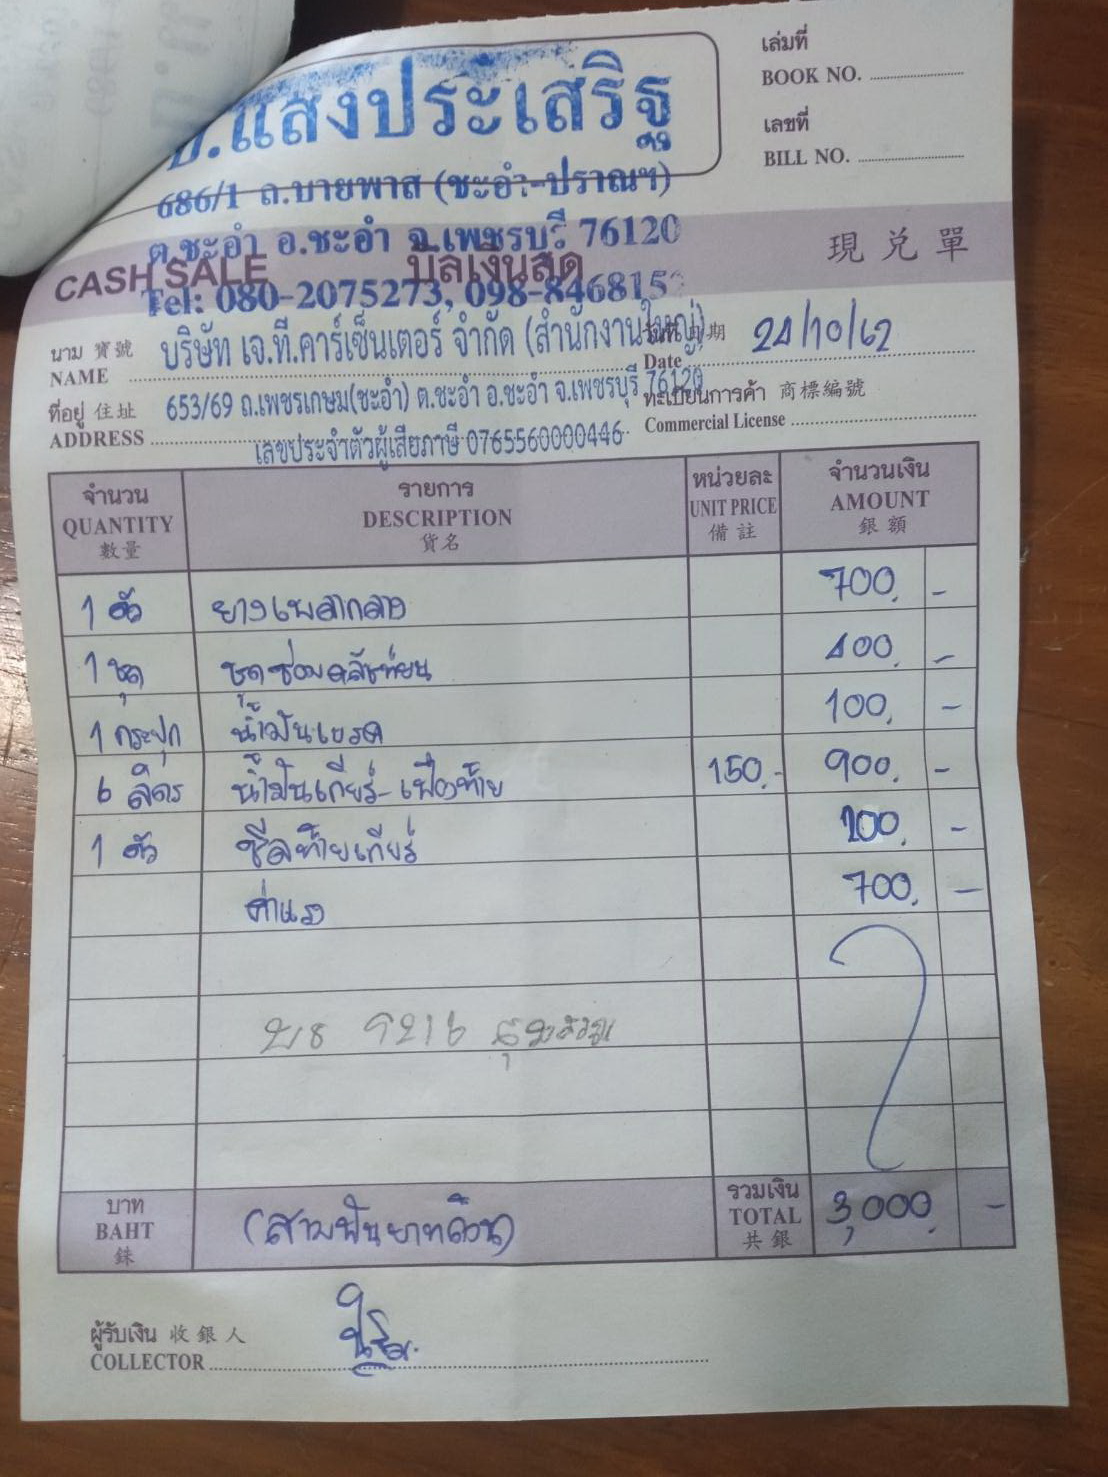 .แสงประเสริฐ
686/1 ถ.บายพาส (ชะอำ-ปราณฯ)
ต.ชะอำ อ.ชะอำ จ.เพชรบุรี 76120
Tel: 080-2075273, 098-846815
เล่มที่
BOOK NO.
เลขที่
BILL NO.
CASH SALE บิลเงินสด 現兑單
นาม 寳號 NAME บริษัท เจ.ที.คาร์เซ็นเตอร์ จำกัด (สำนักงานใหญ่)
วันที่ 日期 Date 24/10/62
ที่อยู่ 住址 ADDRESS 653/69 ถ.เพชรเกษม(ชะอำ) ต.ชะอำ อ.ชะอำ จ.เพชรบุรี 76120
เลขประจำตัวผู้เสียภาษี 0765560000446
ทะเบียนการค้า 商標編號
Commercial License
จำนวน รายการ หน่วยละ จำนวนเงิน
QUANTITY DESCRIPTION UNIT PRICE AMOUNT
數量 貨名 備註 銀額
1 ตัว ยางเพลากลาง 700.-
1 ชุด ชุดซ่อมคลัชท์บน 400.-
1 กระปุก น้ำมันเบรค 100.-
6 ลิตร น้ำมันเกียร์-เฟืองท้าย 150.- 900.-
1 ตัว ซีลท้ายเกียร์ 200.-
ค่าแรง 700.-
บธ 9216
บาท รวมเงิน
BAHT (สามพันบาทถ้วน) TOTAL 3,000.-
銖 共銀
ผู้รับเงิน 收銀人
COLLECTOR